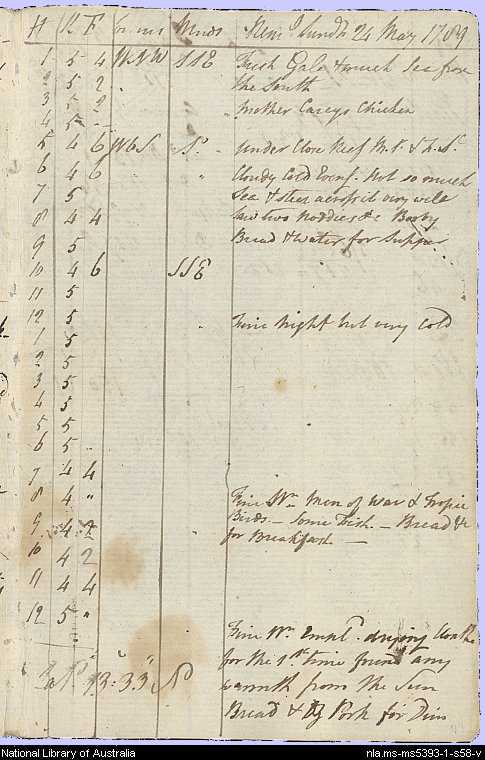 H K F Courses Winds Rem.s Sund.y 24 May 1789
1 5 4 WNW SSE Fresh Gale & much Sea from
2 5 2 " the South
3 5 2 " Mother Careys Chicken
4 5 —
5 4 6 WbS S.o under Close Reef M.T. & F. S.l
6 4 6 " " Cloudy Cold Even.g. Not so much
7 5 Sea & steer aersprit very well
8 4 4 Saw two Noddies & a Booby
9 5 Bread & Water for Supper
10 4 6 SSE
11 5
12 5 " Fine Night but very Cold
1 5
2 5
3 5
4 5
5 5
6 5 "
7 4 4
8 4 " Fine W.r Men of War & Tropic
9 4 2 Birds — Some Fish — Bread &c
10 4 2 for Breakfast —
11 4 4
12 5 "
Fine W.r Empl.d drying Cloaths
for the 1.st time found any
La N.o 13..33 S warmth from the Sun
Bread & Oz Pork for Dinn
National Library of Australia nla.ms-ms5393-1-s58-v